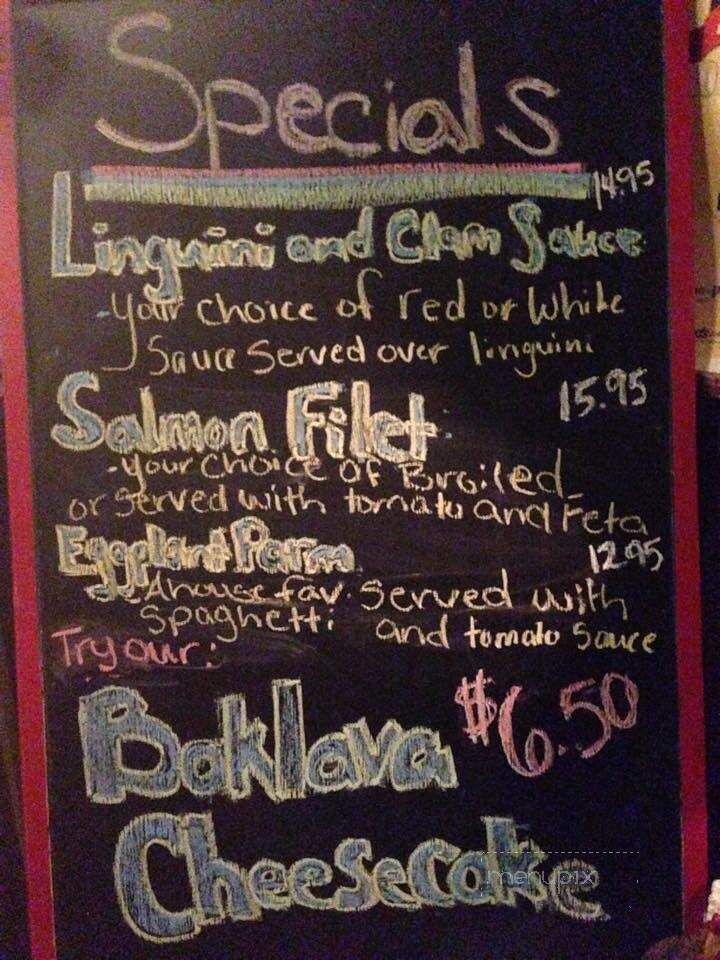 Specials
14.95
Linguini and Clam Sauce
-your choice of red or white
Sauce Served over linguini
15.95
Salmon Filet
-your choice of Broiled
or served with tomato and Feta
Eggplant Parm
12.95
-A house fav. served with
spaghetti and tomato Sauce
Try our:
Baklava $6.50
Cheesecake
menupix